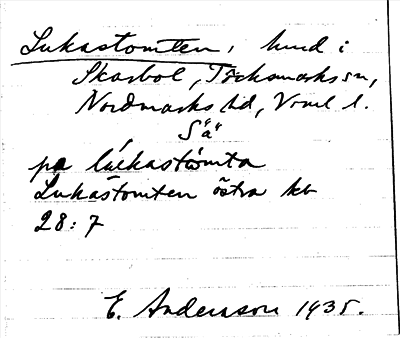 Lukastomten, hmd i
Skarbol, Töcksmarks sn,
Nordmarks hd, Vrml l.
Så
pa lúckastòmta
Lukastomten östra kb
28:7
E. Andersson 1935.